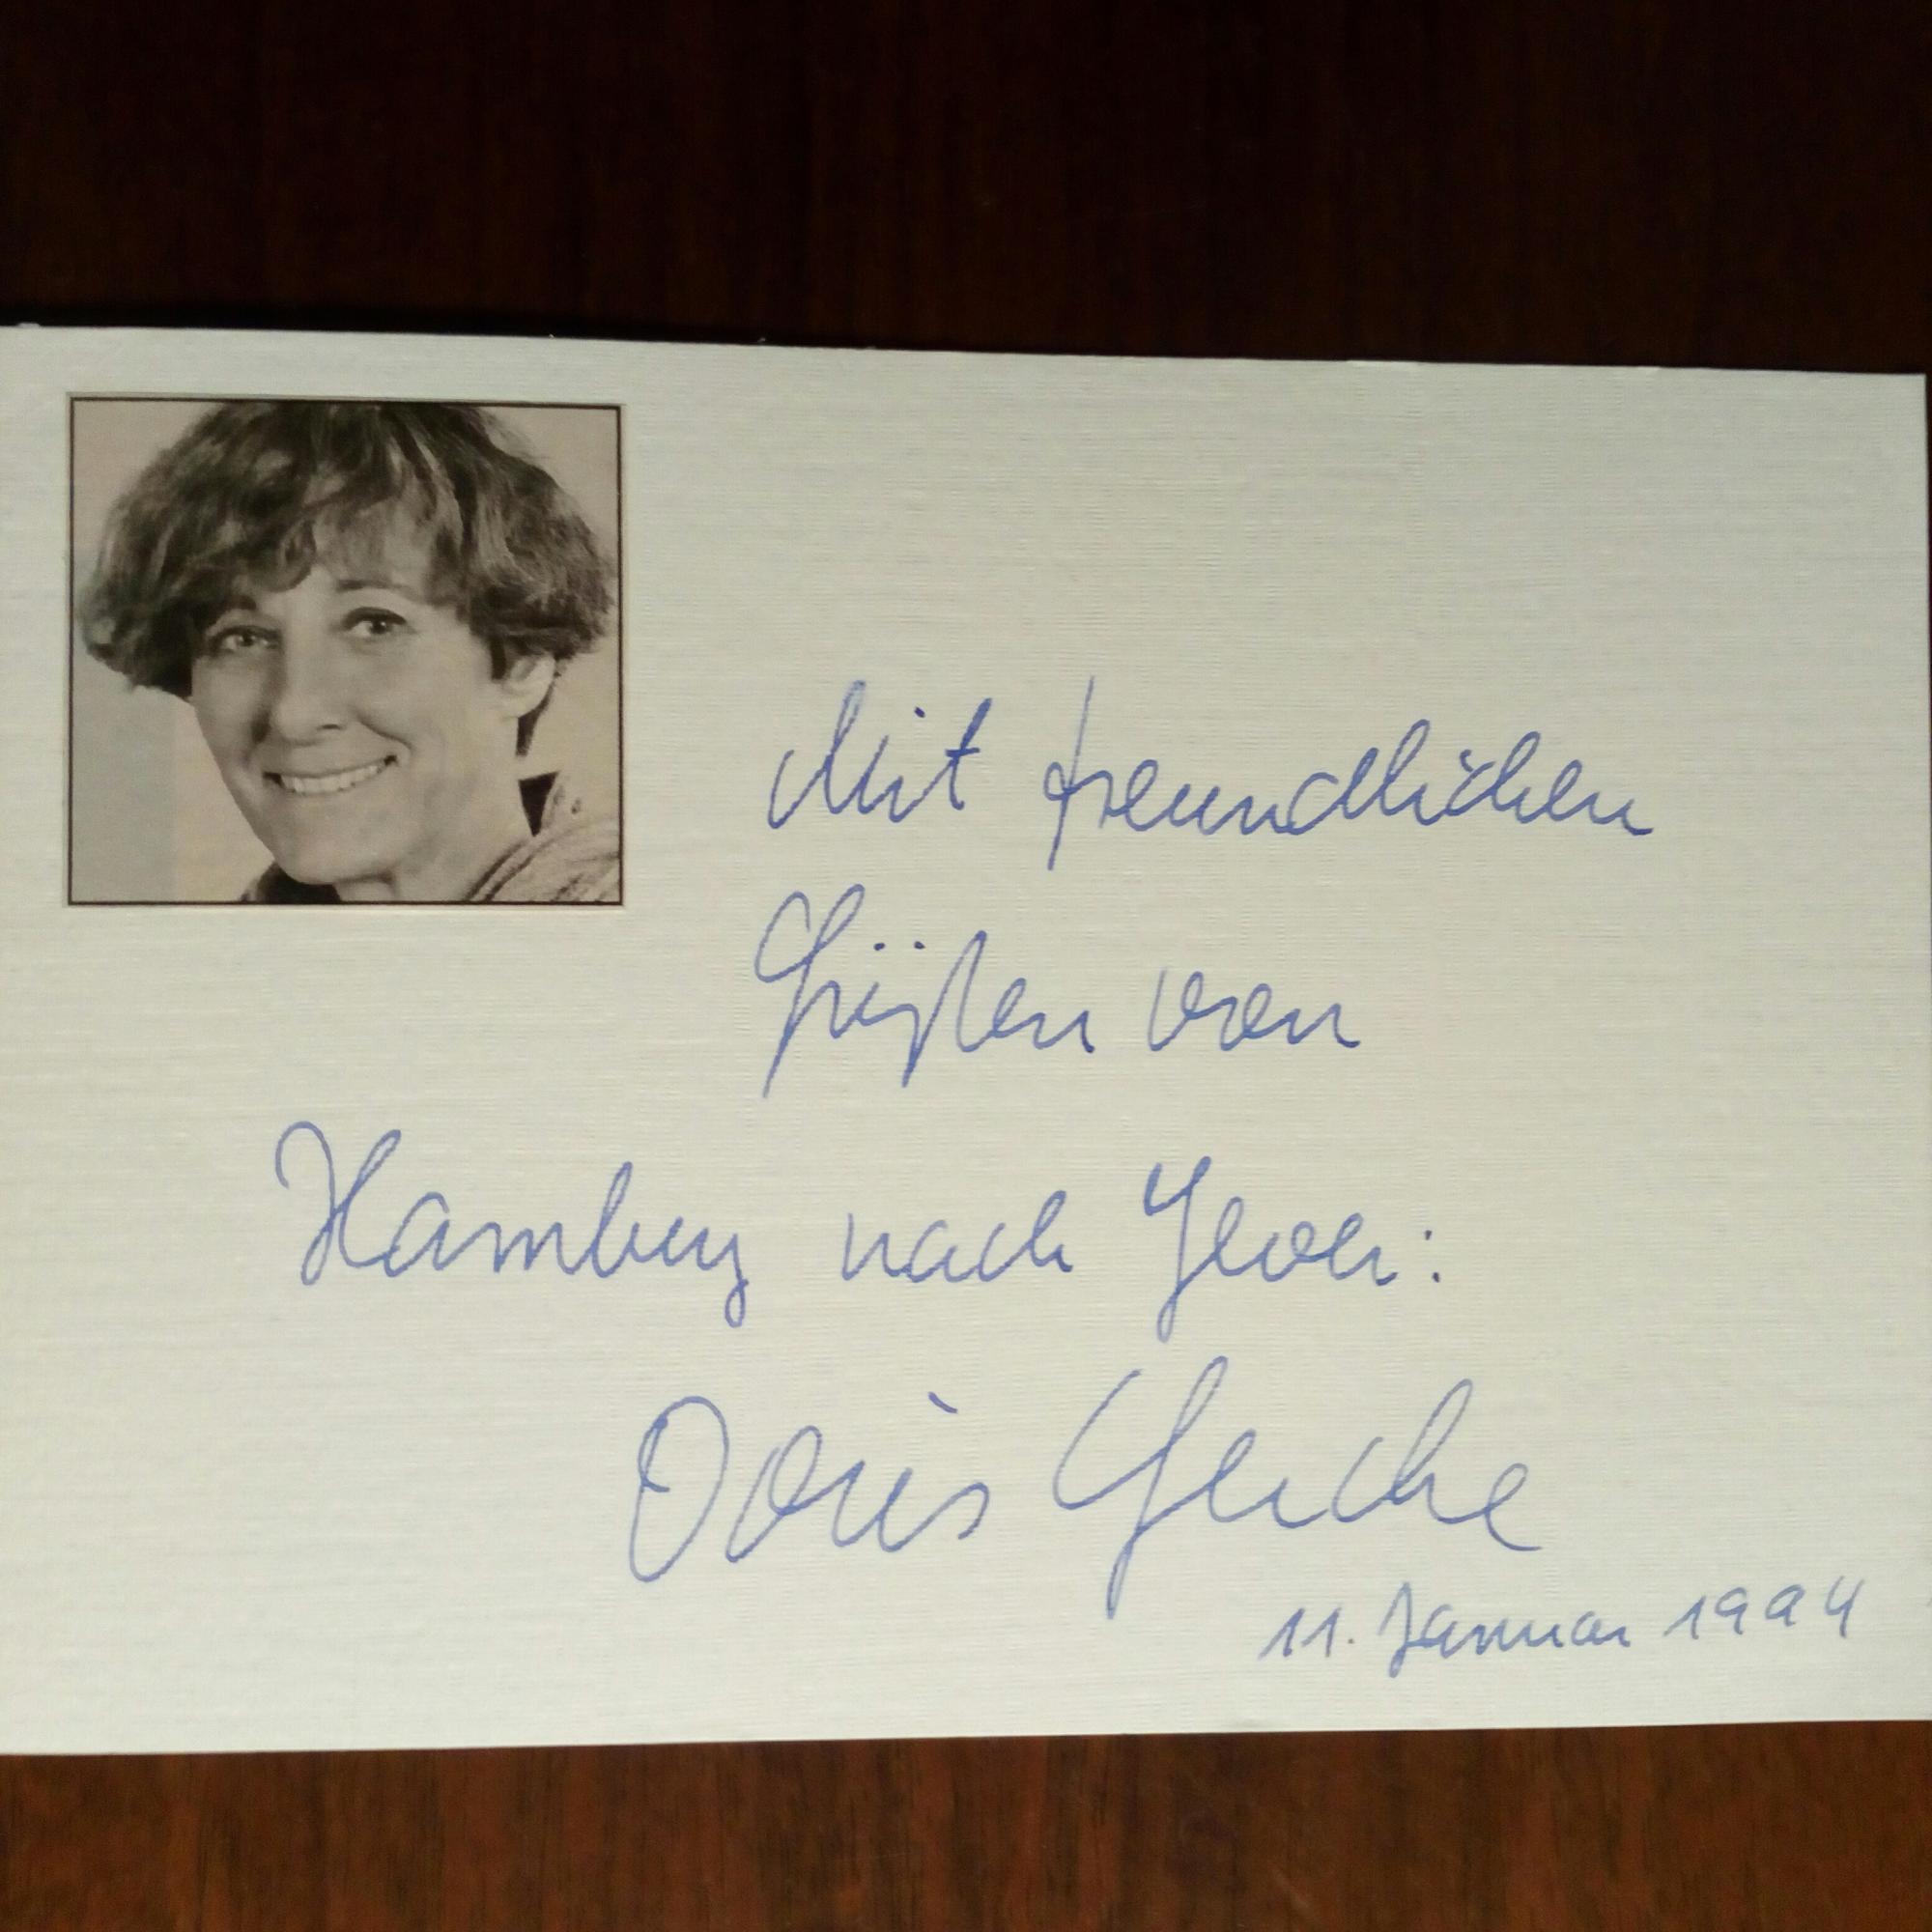 Mit freundlichen
Grüßen von
Hamburg nach Jever:
Doris Gercke
11. Januar 1994